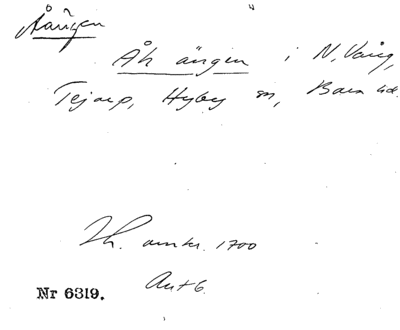 Åängen
Åh ängen i N. Vång,
Tejarp, Hyby sn, Bara hd.
Lh. omkr. 1700
Ant 6.
Nr 6319.